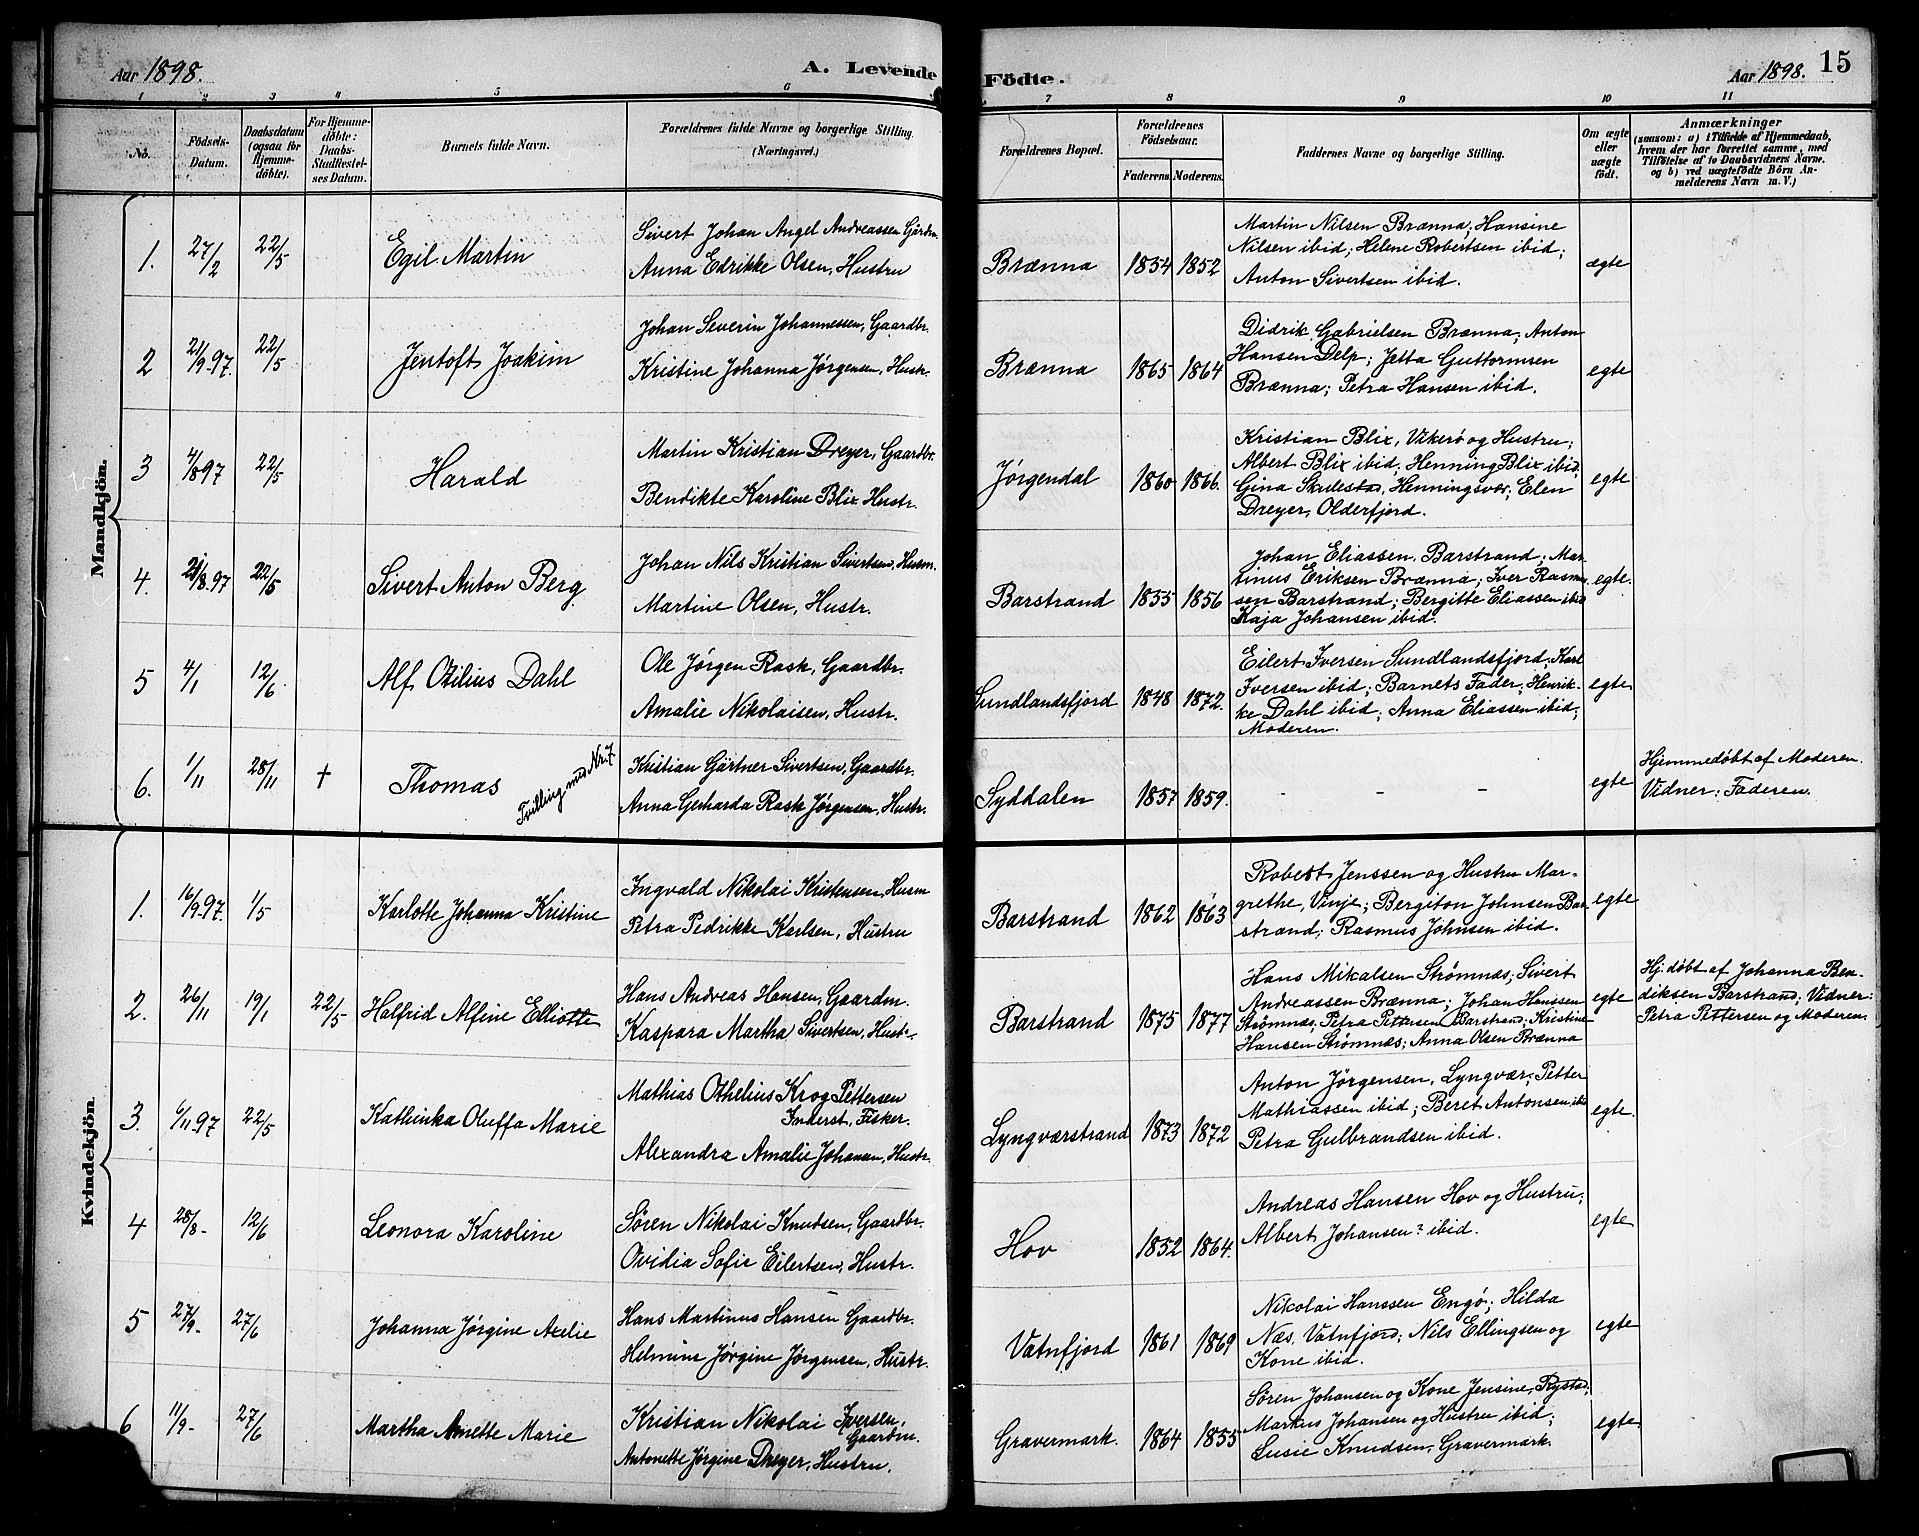 Aar 1898.
A. Levende Födte.
Aar 1898. 15
1 2 3 4 5 6 7 8 9 10 11
No.
Födsels-
Datum.
Daabsdatum
(ogsaa for
Hjemme-
döbte).
For Hjemme-
döbte:
Daabs-
Stadfæstel-
ses Datum.
Barnets fulde Navn.
Forældrenes fulde Navne og borgerlige Stilling.
(Næringsvei.)
Forældrenes Bopæl.
Forældrenes
Födselsaar.
Faderens. Moderens.
Faddernes Navne og borgerlige Stilling.
Om ægte
eller
uægte
födt.
Anmærkninger
(saasom: a) i Tilfælde af Hjemmedaab,
hvem der har forrettet samme, med
Tilföielse af to Daabsvidners Navne.
og b) ved uægtefödte Börn An-
melderens Navn m. V.)
Mandkjön.
1. 27/2 22/5 Egil Martin
Sivert Johan Angel Andreassen Gårdm.
Anna Edrikke Olsen, Hustru
Brænna 1854 1852
Martin Nilsen Brænna; Hansine
Nilsen ibid; Helene Robertsen ibid;
Anton Sivertsen ibid.
ægte
2 21/9.97. 22/5 Jentoft Joakim
Johan Severin Johannessen, Gaardbr.
Kristine Johanna Jørgensen, Hustr.
Brænna 1865 1864
Didrik Gabrielsen Brænna; Anton
Hansen Delp; Jetta Guttormsen
Brænna; Petra Hansen ibid.
egte
3 4/8 97 22/5 Harald
Martin Kristian Dreyer, Gaardbr.
Bendikte Karoline Blix Hustr.
Jørgendal 1860 1866.
Kristian Blix, Vikerø og Hustru;
Albert Blix ibid; Henning Blix ibid;
Gina Skulestad, Henningsvær; Elen
Dreyer, Olderfjord.
egte
4. 21/8.97 22/5 Sivert Anton Berg
Johan Nils Kristian Sivertsen, Husm.
Martine Olsen, Hustr.
Barstrand 1855 1856
Johan Eliassen, Barstrand; Mar-
tinus Eriksen Brænna; Iver Rasmus-
sen Barstrand; Bergitte Eliassen ibid
Kaja Johansen ibid.
egte.
5 4/1 12/6 Alf Otilius Dahl
Ole Jørgen Rask, Gaardbr.
Amalie Nikolaisen, Hustr.
Sundlandsfjord 1848 1872.
Eilert Iversen Sundlandsfjord; Karl
Iversen ibid; Barnets Fader; Henrik-
ke Dahl ibid; Anna Eliassen ibid;
Moderen.
egte
6. 1/11 28/11 † Thomas
Tvilling med Nr. 7
Kristian Gärtner Sivertsen, Gaardbr.
Anna Gerharda Rask Jørgensen, Hustr.
Syddalen 1857 1859.
- - -
egte
Hjemmedøbt af Moderen.
Vidner: Faderen.
Kvindekjön.
1. 16/9.97. 1/5 Karlotte Johanna Kristine
Ingvald Nikolai Kristensen, Husm
Petra Pedrikke Karlsen, Hustru
Barstrand 1862 1863
Robert Jenssen og Hustru Mar-
grethe, Vinje; Bergiton Johnsen Bar-
strand; Rasmus Johnsen ibid.
egte
2. 26/11 19/1 22/5 Halfrid Alfine Elliotte
Hans Andreas Hansen, Gaardm.
Kaspara Martha Sivertsen, Hustr.
Barstrand 1875 1877
Hans Mikalsen Strømnæs; Sivert
Andreassen Brænna; Johan Hanssen
Strømnæs; Petra Pettersen Barstrand; Kristine
Hansen Strømnæs; Anna Olsen Brænna
egte
Hj.døbt af Johanna Ben-
diksen Barstrand; Vidner:
Petra Pettersen og Moderen.
3. 6/11 97 22/5 Kathinka Oluffa Marie
Mathias Othelius Krog Pettersen
Inderst, Fisker.
Alexandra Amalie Johansen, Hustr.
Lyngværstrand 1873 1872
Anton Jørgensen, Lyngvær; Petter
Mathiassen ibid; Beret Antonsen, ibid
Petra Gulbrandsen ibid.
egte.
4 28/8- 12/6 Leonora Karoline
Søren Nikolai Knudsen, Gaardbr.
Ovidia Sofie Eilertsen, Hustr.
Hov 1852 1864.
Andreas Hansen Hov og Hustru;
Albert Johansen? ibid.
egte
5 27/9- 27/6 Johanna Jørgine Axelie
Hans Martinus Hansen Gaardbr.
Helmine Jørgine Jørgensen, Hustr.
Vatnfjord 1861 1869
Nikolai Hanssen Engø; Hilda
Næs, Vatnfjord; Nils Ellingsen og
Kone ibid.
egte
6 11/9- 27/6 Martha Annette Marie
Kristian Nikolai Iversen,
Gaardm.
Antonette Jørgine Dreyer, Hustru.
Gravermark. 1864 1855
Søren Johansen og Kone Jensine, Rystad;
Markus Johansen og Hustru ibid;
Lusie Knudsen, Gravermark.
egte